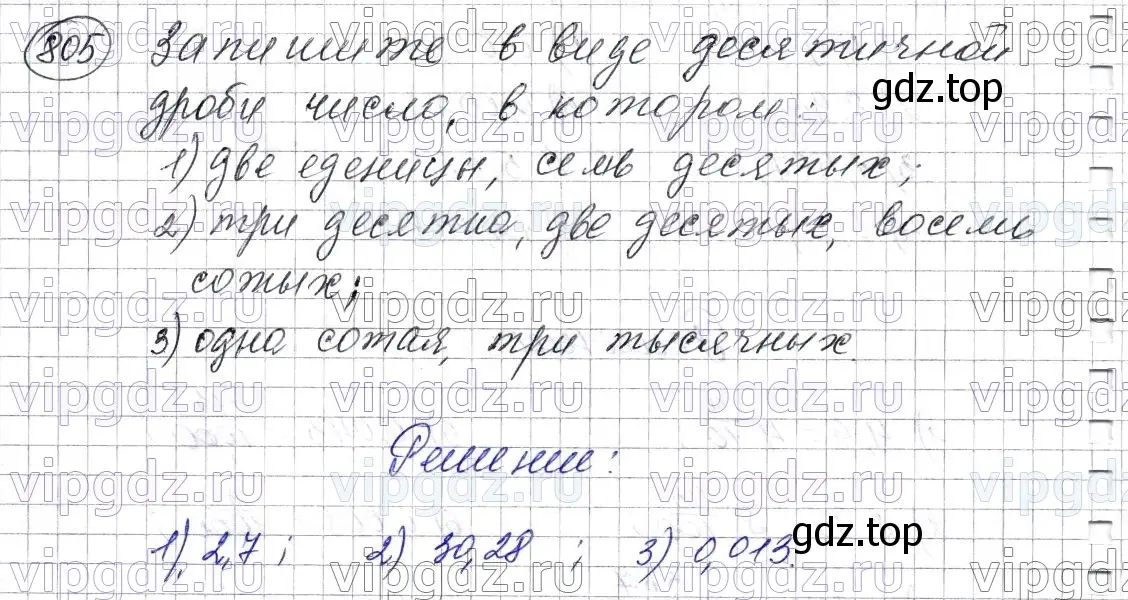 805 Запишите в виде десятичной
дроби число, в котором:
1) две еденицы, семь десятых;
2) три десятка, две десятых, восемь
сотых;
3) одна сотая, три тысячных
Решение:
1) 2,7 ; 2) 30,28 ; 3) 0,013.
gdz.top
gdz.top
vipgdz.ru